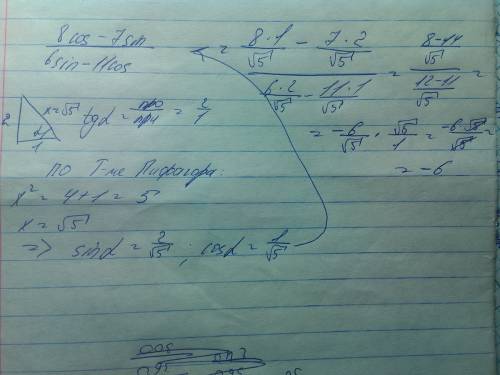 8cos - 7sin / 6sin - 11cos = (8·1/√5 - 7·2/√5) / (6·2/√5 - 11·1/√5) = (8-14/√5) / (12-11/√5) =
2 x=√5 α 1 tgα = про/при = 2/1
= -6/√5 · √5/1 = -6·√5/√5 =
= -6
по Т-ме Пифагора:
x² = 4+1 = 5
x = √5
=> sinα = 2/√5 ; cosα = 1/√5